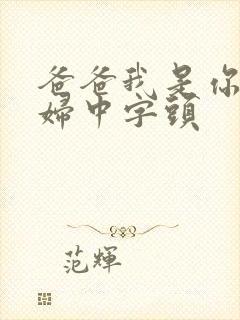 爸爸我是你
婦中字頭
范輝